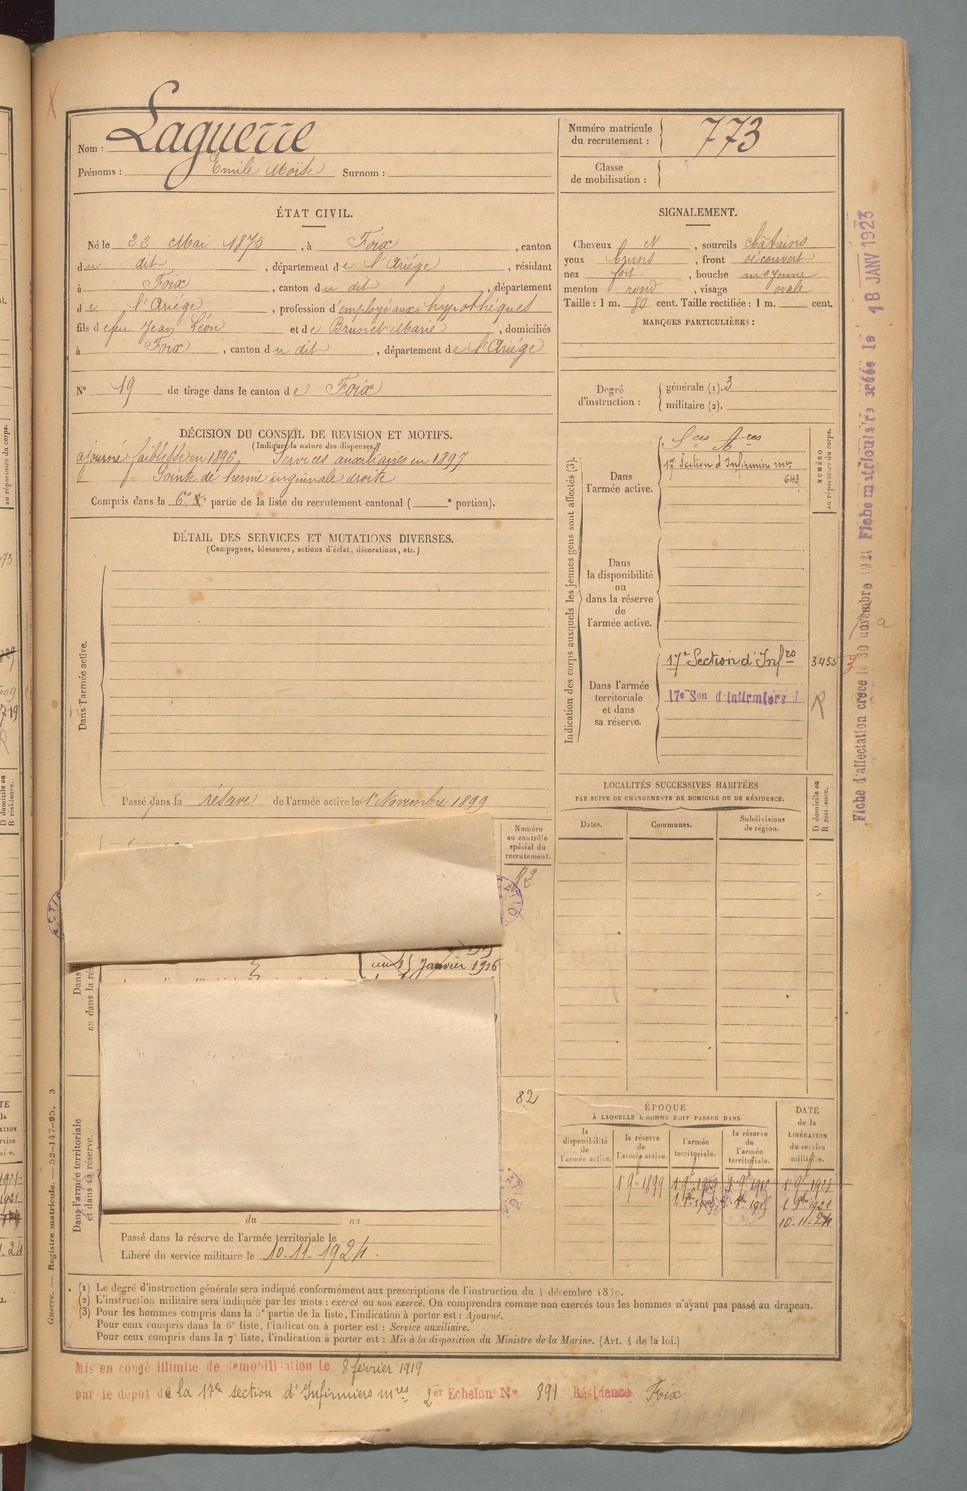 Nom : Laguerre
Prénoms : Emile Moïse Surnom :
Numéro matricule du recrutement : 773
Classe de mobilisation :
ÉTAT CIVIL.
Né le 22 Mai 1875, à Foix, canton
du dit, département de l'Ariége, résidant
à Foix, canton du dit, département
de l'Ariége, profession d'employé aux hypothéques
fils de feu Jean Léon et de Brunet Marie, domiciliés
à Foix, canton du dit, département de l'Ariége
N° 19 de tirage dans le canton de Foix
SIGNALEMENT.
Cheveux N, sourcils châtains
yeux bruns, front découvert
nez fort, bouche moyenne
menton rond, visage ovale
Taille : 1 m. 80 cent. Taille rectifiée : 1 m. cent.
MARQUES PARTICULIÈRES :
Degré d'instruction : générale (1). 3
militaire (2).
DÉCISION DU CONSEIL DE REVISION ET MOTIFS.
(Indiquer la nature des dispenses.)
ajourné faiblesse en 1896, Services auxiliaires en 1897
Pointe de hernie inguinale droite
Compris dans la 6e partie de la liste du recrutement cantonal ( e portion).
DÉTAIL DES SERVICES ET MUTATIONS DIVERSES.
(Campagnes, blessures, actions d'éclat, décorations, etc.)
Dans l'armée active.
Passé dans la réserve de l'armée active le 1er Novembre 1899
Indication des corps auxquels les jeunes gens sont affectés (3).
NUMÉRO au répertoire du corps.
Dans l'armée active.
Sces Aces
17e Section d'Infirmiers mres
643
Dans la disponibilité ou dans la réserve de l'armée active.
Dans l'armée territoriale et dans sa réserve.
17e Section d'Infro 3455
17e Son d'Infirmiers
R
Fiche d'affectation créée le 30 novembre 1921 Fiche matriculaire créée le 18 JANV 1923
LOCALITÉS SUCCESSIVES HABITÉES
PAR SUITE DE CHANGEMENTS DE DOMICILE OU DE RÉSIDENCE.
Dates.
Communes.
Subdivisions de région.
D domicile ou R résidence.
Numéro au contrôle spécial du recrutement.
82
Janvier 1916
82
Dans l'armée territoriale et dans sa réserve.
du au
Passé dans la réserve de l'armée territoriale le
Libéré du service militaire le 10.11.1924.
ÉPOQUE
À LAQUELLE L'HOMME DOIT PASSER DANS
la disponibilité de l'armée active.
la réserve de l'armée active.
l'armée territoriale.
la réserve de l'armée territoriale.
DATE de la LIBÉRATION du service militaire.
1 9bre 1899
10-11-24
(1) Le degré d'instruction générale sera indiqué conformément aux prescriptions de l'instruction du 4 décembre 1889.
(2) L'instruction militaire sera indiquée par les mots : exercé ou non exercé. On comprendra comme non exercés tous les hommes n'ayant pas passé au drapeau.
(3) Pour les hommes compris dans la 5e partie de la liste, l'indication à porter est : Ajourné.
Pour ceux compris dans la 6e liste, l'indication à porter est : Service auxiliaire.
Pour ceux compris dans la 7e liste, l'indication à porter est : Mis à la disposition du Ministre de la Marine. (Art. 4 de la loi.)
Guerre. — Registre matricule. — 52-147-95. 3
Mis en congé illimité de démobilisation le 8 février 1919
par le dépôt de la 17e section d'Infirmiers mres 2er Echelon N° 891 Résidence Foix